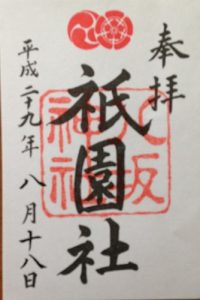 奉拝
八坂神社
祇園社
平成二十九年八月十八日